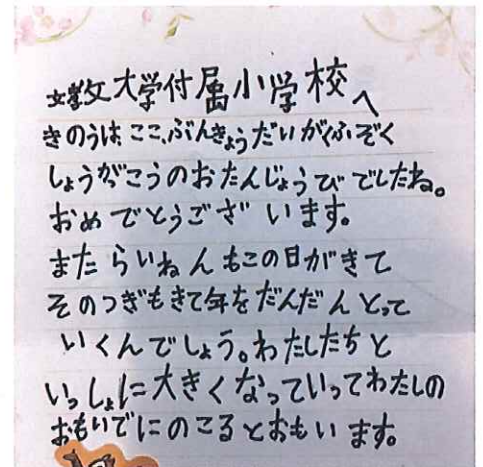 文教大学付属小学校へ
きのうは、ここ、ぶんきょうだいがくふぞく
しょうがっこうのおたんじょうびでしたね。
おめでとうございます。
またらいねんもこの日がきて
そのつぎもきて年をだんだんとって
いくんでしょう。わたしたちと
いっしょに大きくなっていってわたしの
おもいでにのこるとおもいます。